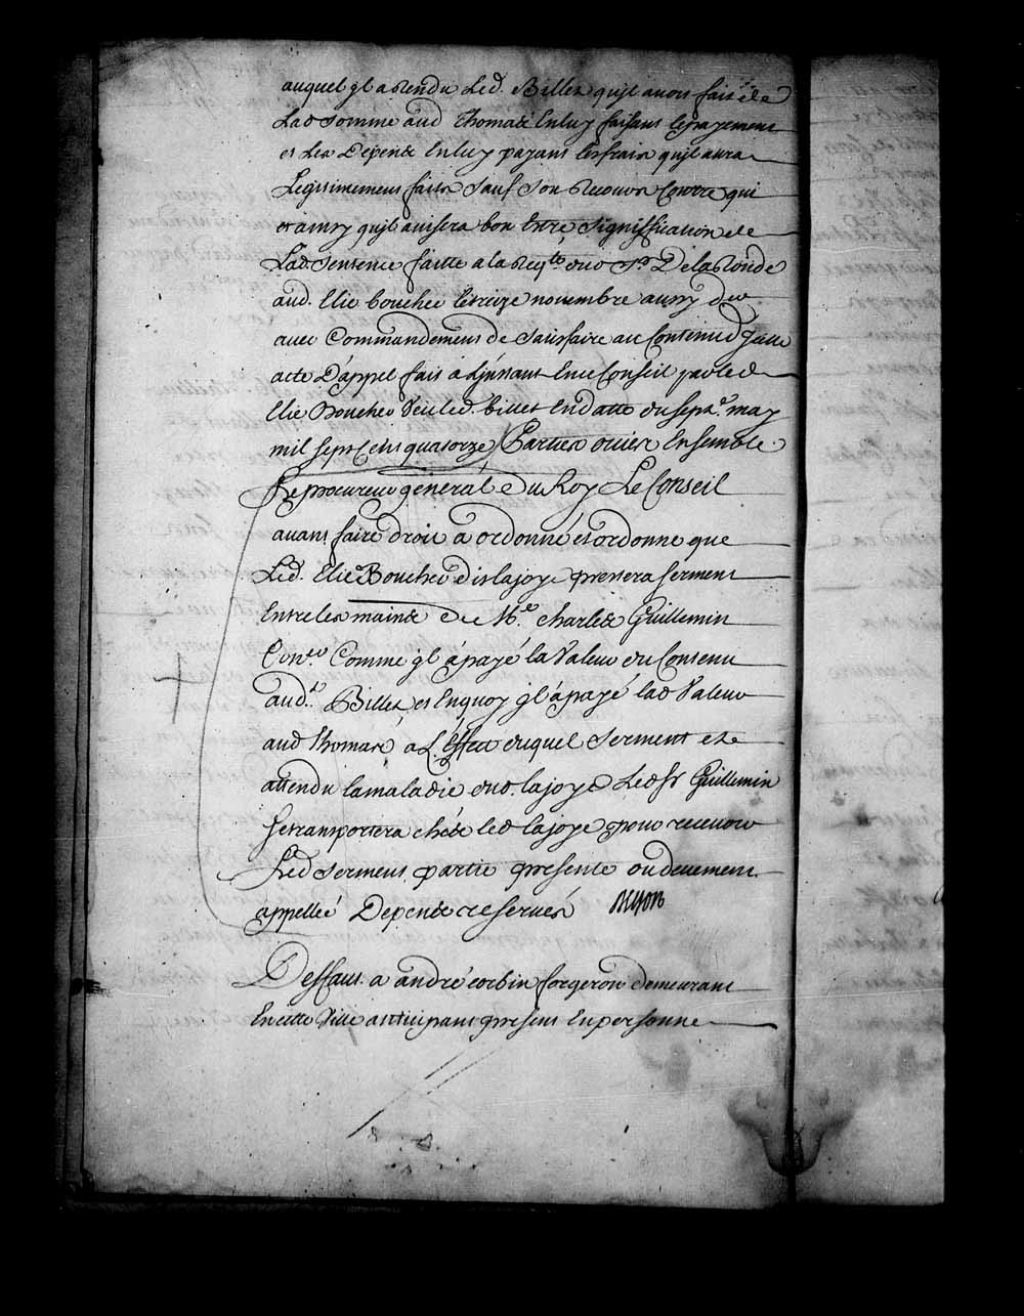 auquel jl a Rendu Led. Billet qu'jl avoit fait de
Lad somme aud Thomas Enluy faisant Le payement
et Les Depens Enluy payant les frais qu'jl aura
Legitimement faits sauf son Recours Contre qui
et ainsy qu'jl avisera bon Estre, signiffication de
Lad. Sentence faitte a la Reqte dud Sr De la Ronde
aud. Elie bouchee le treize novembre aussy der
avec Commandement de satisfaire au Contenu d'jcelle
acte D'appel fait a L'jnstant En ce Conseil par led
Elie Boucher Veu led. billet En datte du sept.e may
mil sept Cens quatorze Parties ouies Ensemble
Le procureur général du Roy Le Conseil
avant faire droit a ordonné et ordonne que
Led. Elie Boucher dit lajoye prestera serment
Entre les mains de Me. charles Guillemin
Conr. Comme jl a payé la Valeur du Contenu
aud. Billet et En quoy jl a payé lad Valeur
aud Thomas, a L'Effect duquel serment et
attendu la maladie dud. lajoye Led Sr Guillemin
se transportera chés led lajoye pour recevoir
Led serment partie presente ou deuement
appellée Depens reservés Begon
Deffaut a andré corbin forgeron demeurant
En cette Ville anticipant present En personne